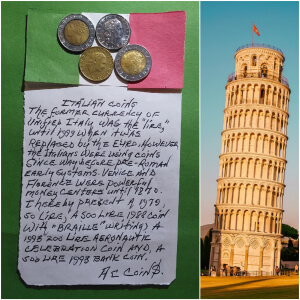 ITALIAN COINS
THE FORMER CURRENCY OF
UNIFIED ITALY WAS THE "LIRE,"
UNTIL 1999 WHEN IT WAS
REPLACED BY THE EURO. HOWEVER
THE ITALIANS WERE USING COINS
SINCE WAY BEFORE PRE-ROMAN
EARLY SYSTEMS. VENICE AND
FLORENCE WERE POWERFUL
MONEY CENTERS UNTIL
I hereby PRESENT A 1979,
50 LIRE, A 500 LIRE 1988 COIN
WITH "BRAILLE" WRITING, A
1998 200 LIRE AERONAUTIC
CELEBRATION COIN AND, A
500 LIRE 1993 BANK COIN.
AC COIN$.